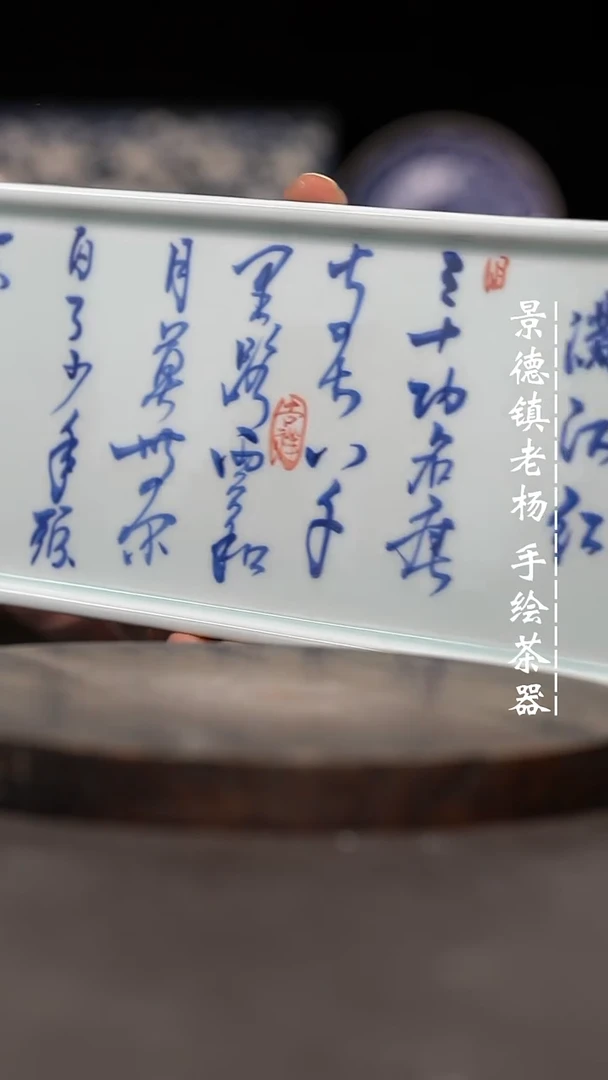 滿江红
三十功名塵
与土八千
里路雲和
月莫等闲
白了少年頭
吉祥
景德镇老杨 手绘茶器